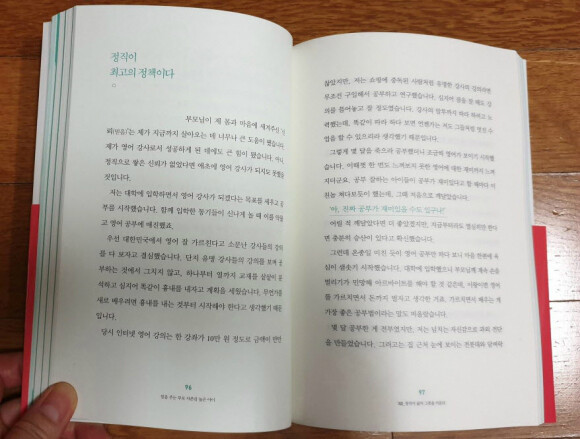 정직이
최고의 정책이다
부모님이 제 몸과 마음에 새겨주신 '신
뢰(믿음)'는 제가 지금까지 살아오는 데 너무나 큰 도움이 됐습니다.
제가 영어 강사로서 성공하게 된 데에도 큰 힘이 됐습니다. 아니
정직으로 쌓은 신뢰가 없었다면 애초에 영어 강사가 되지도 못했을
것입니다.
저는 대학에 입학하면서 영어 강사가 되겠다는 목표를 세우고 공
부를 시작했습니다. 함께 입학한 동기들이 신나게 놀 때 이를 악물
고 영어 공부에 매진했죠.
우선 대한민국에서 영어 잘 가르친다고 소문난 강사들의 강의
를 다 보자고 결심했습니다. 단지 유명 강사들의 강의를 보며 공
부하는 것에서 그치지 않고, 하나부터 열까지 교재를 샅샅이 분
석하고 심지어 똑같이 흉내를 내자고 계획을 세웠습니다. 무언가를
새로 배우려면 흉내를 내는 것부터 시작해야 한다고 생각했기 때문
입니다.
당시 인터넷 영어 강의는 한 강좌가 10만 원 정도로 금액이 만만
96
않았지만, 저는 쇼핑에 중독된 사람처럼 유명한 강사의 강좌라면
무조건 구입해서 공부하고 연구했습니다. 심지어 몸을 잘 때도 강
의를 틀어놓고 잘 정도였습니다. 강사의 말투까지 따라 하려고 노
력했는데, 똑같이 따라 하다 보면 언젠가는 저도 그들처럼 멋진 수
업을 할 수 있으리라 생각했기 때문입니다.
그렇게 몇 달을 죽으라 공부했더니 조금씩 영어가 보이기 시작했
습니다. 이때껏 한 번도 느껴보지 못한 영어에 대한 재미까지 느껴
지더군요. 공부 잘하는 아이들이 공부가 재미있다고 할 때마다 미
친놈 쳐다보듯이 했는데, 그때 처음으로 깨달았습니다.
'아, 진짜 공부가 재미있을 수도 있구나!'
어릴 적 깨달았다면 더 좋았겠지만, 지금부터라도 열심히만 한다
면 충분히 승산이 있다고 확신했습니다.
그런데 온종일 미친 듯이 영어 공부만 하다 보니 다음 한편에 욕
심이 샘솟기 시작했습니다. 대학에 입학했으니 부모님께 계속 손을
벌리기가 민망해 아르바이트를 해야 할 것 같은데, 사람이면 영어를
가르치면서 돈까지 벌자고 생각한 거죠. 가르치면서 배우는 게
가장 좋은 공부법이라는 말도 떠올랐습니다.
몇 달 공부한 게 전부였지만, 저는 넘치는 자신감으로 과외 전단
을 만들었습니다. 그러고는 집 근처 눈에 보이는 전봇대와 담벼락
97